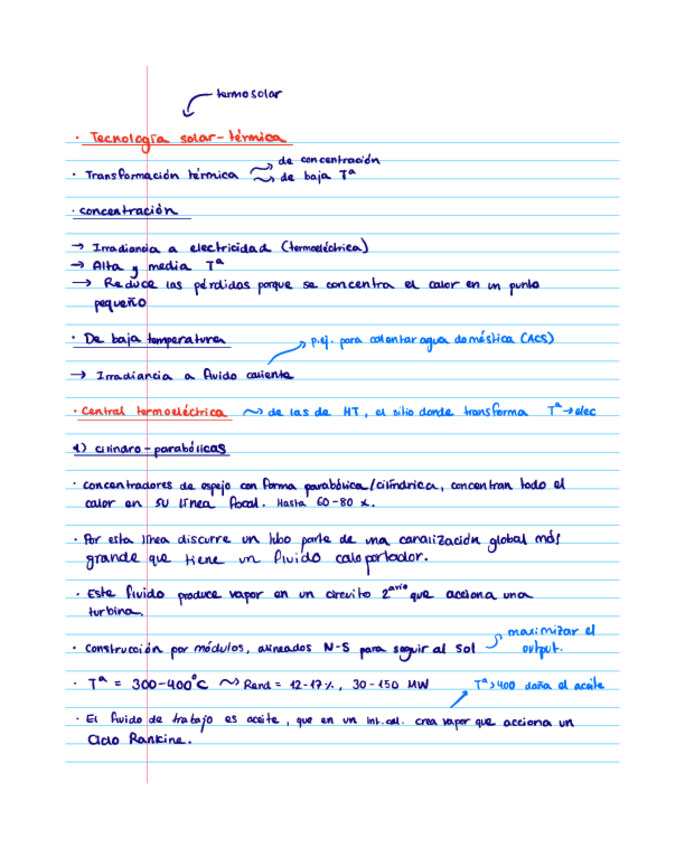 termosolar
· Tecnología solar-térmica
· Transformación térmica de concentración
de baja Tª
· concentración
→ Irradiancia a electricidad (termoeléctrica)
→ Alta y media Tª
→ Reduce las pérdidas porque se concentra el calor en un punto
pequeño
· De baja temperatura
p.ej. para calentar agua doméstica (ACS)
→ Irradiancia a fluido caliente
· Central termoeléctrica ~> de las de HT, el sitio donde transforma Tª → elec
1) cilindro-parabólicas
· concentradores de espejo con forma parabólica/cilíndrica, concentran todo el
calor en su línea focal. Hasta 60-80 x.
· Por esta línea discurre un tubo parte de una canalización global más
grande que tiene un fluido caloportador.
· Este fluido produce vapor en un circuito 2ario que acciona una
turbina.
· Construcción por módulos, alineados N-S para seguir al sol
maximizar el
output.
· Tª = 300-400°C ~> Rend = 12-17%, 30-150 MW
Tª>400 daña el aceite
· El fluido de trabajo es aceite, que en un int.cal. crea vapor que acciona un
Ciclo Rankine.